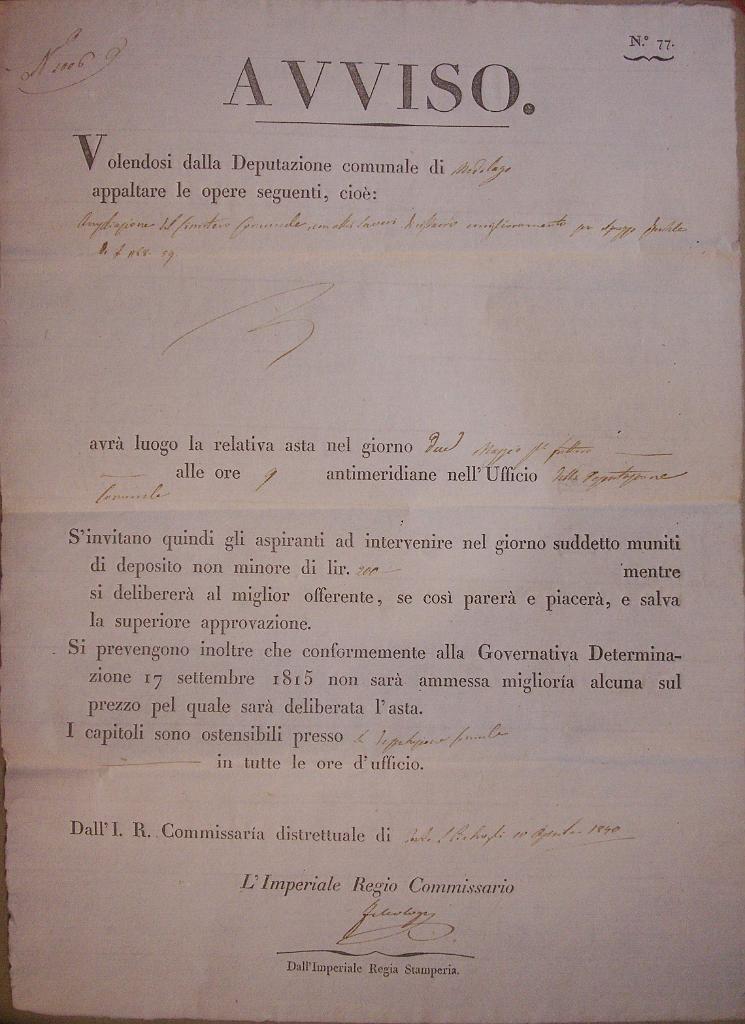 N.° 77.
AVVISO.
Volendosi dalla Deputazione comunale di Medolago
appaltare le opere seguenti, cioè:
Ampliazione del Cimitero Comunale, con altri lavori di
di £
avrà luogo la relativa asta nel giorno due Maggio
alle ore 9 antimeridiane nell'Ufficio della Deputazione
Comunale
S'invitano quindi gli aspiranti ad intervenire nel giorno suddetto muniti
di deposito non minore di lir. 200 mentre
si delibererà al miglior offerente, se così parerà e piacerà, e salva
la superiore approvazione.
Si prevengono inoltre che conformemente alla Governativa Determina-
zione 17 settembre 1815 non sarà ammessa miglioría alcuna sul
prezzo pel quale sarà deliberata l'asta.
I capitoli sono ostensibili presso la Deputazione Comunale
in tutte le ore d'ufficio.
Dall'I. R. Commissaría distrettuale di 10 Aprile 1840
L'Imperiale Regio Commissario
Dall'Imperiale Regia Stamperia.